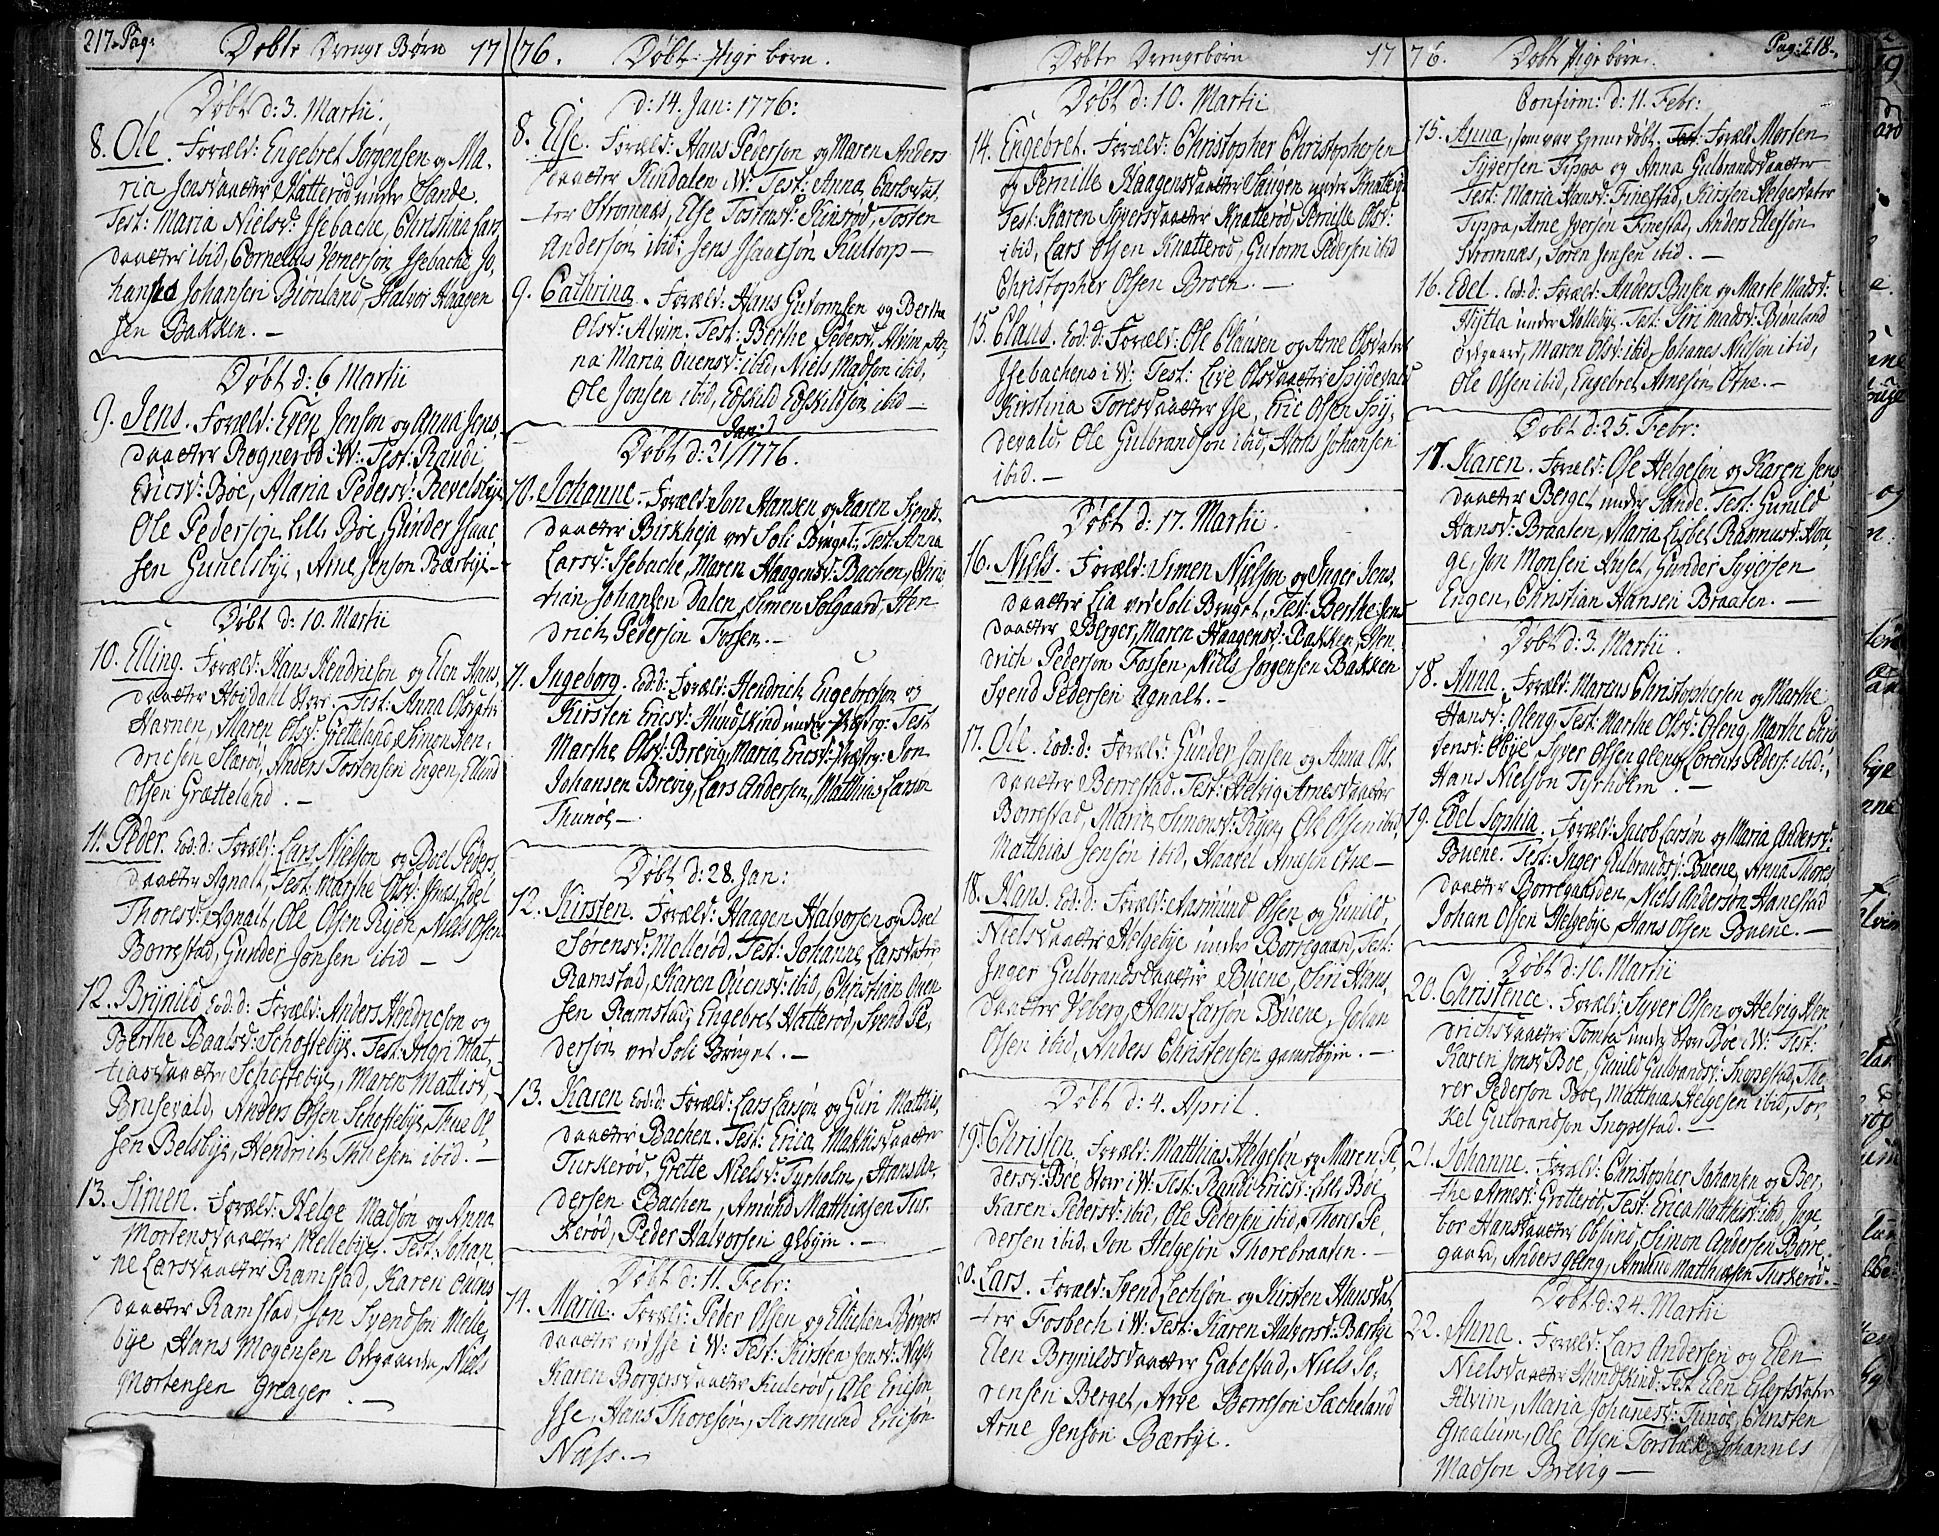 217. Pag:
Døbte Drenge Børn 17
Døbt d: 3. Martii.
8. Ole. Foræld: Engebret Jørgensen og Ma-
ria Jensdaatter Hatterød under Sande.
Test: Maria Nielsd: Isebache, Christina Lars
daatter ibid, Cornelius Vernersøn Isebache Jo-
hannes Johansen Biønland, Halvor Haagen
sen Bakken. —
Døbt d: 6 Martii
9. Jens. Foræld: Even Jensøn og Anna Jens
daatter Rognerød i W: Test: Randi
Ericsd: Bøe, Maria Pedersd: Revelsbye
Ole Pedersøn Lille Bøe Gunder Isaac-
sen Gunelsbye, Arne Jensøn Bærbye —
Døbt d: 10. Martii
10. Elling. Foræld: Hans Hendricsøn og Elen Hans,
daatter Høidahl Stor. Test: Anna Olsdatter
Havnen, Maren Olsd: Grætteland, Simon Hen-
dricsen Skarød, Anders Tostensen Engen, Ellend
Olsen Grætteland. —
11. Peder. Eod: d: Foræld: Lars Nielsen og Boel Peders,
daatter Agnalt, Test: Marthe Olsd: Ness, Edel
Thoresd: Agnalt, Ole Olsen Reyen, Niels Olsen
Borrestad, Gunder Jonsen ibid —
12. Brynild Eod: d: Foræld: Anders Hendricsøn og
Berthe Baalsd: Schoftebye. Test: Ingri Mat,
tiasdaatter Schoftebye, Maren Mattisd,
Brusevald, Anders Olsen Schoftebye, Thue Ol-
sen Belsbye, Hendrich Thuesen ibid. —
13. Simen. Foræld: Helge Madsøn og Anna
Mortensdaatter Mellebye. Test: Johan,
ne Larsdaatter Ramstad, Karen Ouens
daatter Ramstad, Jon Svendsøn Melle
bye, Hans Mogensen Odgaarden, Niels
Mortensen Greager. —
76. Døbt: Pige børn.
d: 14. Jan: 1776:
8. Else. Foræld: Hans Pedersøn og Maren Anders
daatter Kindalen i W: Test: Anna Carlsdat-
ter Strømnæs, Else Tostensd: Kinsrød, Tosten
Andersøn ibid: Jens Isaacsøn Kultorp —
9. Cathrina. Foræld: Hans Gutormsen og Berthe
Olsd: Alvim. Test: Berthe Pedersd, Alvim, An,
na Maria Ouensd: ibid, Niels Madsøn ibid,
Ole Jonsen ibid, Edskild Edskildsøn ibid —
Døbt d: 21 Jan: 1776.
10. Johanne. Foræld: Jon Hansen og Karen Svend,
daatter Birkheja ved Soli Bruget, Test: Anna
Larsd: Isebache, Maren Haagensd: Bachen, Chris-
tian Johansen Dalen, Simen Solgaard, Hen
drich Pedersøn Fossen. —
11. Ingeborg. Eod: d: Foræld: Hendrich Engebretsøn og
Kirsten Ericsd: Hundskind under Test
Marthe Olsd: Brevig, Maria Ericsd: Jon
Johansen Brevig, Lars Andersen, Matthias Larsøn
Thunøe —
Døbt d: 28. Jan:
12. Kirsten. Foræld: Haagen Halvorsen og Boel
Sørensd: Mellerød, Test: Johanne Larsdatter
Ramstad, Karen Ouensd: ibid, Christian Ouen
sen Ramstad, Engebret Hatterød, Svend Pe,
dersøn ved Soli Bruget. —
13. Karen Eod: d: Foræld: Lars Larsøn og Guri Mathis,
daatter Bachen. Test: Erica Mathisdaatter
Turkerød, Grette Nielsd: Tyrholm, Hans An,
dersen Bachen, Amund Matthissen Tur-
kerød, Peder Halvorsen glbyim. —
Døbt d: 11. Febr:
14. Maria. Foræld: Peder Olsen og Ellichen Børgers
daatter ved Ise i W: Test: Kirsten Jensd: Ness,
Karen Borgersdaatter Kulerød, Ole Ericsøn
Ise, Hans Thoresøn, Aasmund Ericsøn
Næss. —
Døbte Drengebørn 17
Døbt d: 10. Martii
14. Engebret. Foræld: Christopher Christophersen
og Pernille Haagensdaatter Haugen under Knatterød
Test: Karen Syversdaatter Knatterød, Pernille Olsd:
ibid, Lars Olsen Knatterød, Gutorm Pedersen ibid
Christopher Olsen Broen. —
15. Claus. Eod: d: Foræld: Ole Clausen og Arne Olsdatter
Isebachene i W: Test: Live Olsdaatter Spydevald
Kirstina Toresdaatter Ise, Eric Olsen Spy,
devald, Ole Gulbrandsøn ibid, Hans Johansen
ibid. —
Døbt d: 17. Martii.
16. Niels. Foræld: Simen Nielsøn og Inger Jens,
daatter Lia ved Soli Bruget, Test: Berthe Jens
daatter Berger, Maren Haagensd: Bakken, Hen-
drich Pedersøn Fossen, Niels Jørgensen Bakken
Svend Pedersen Agnalt. —
17. Ole. Eod: d: Foræld: Gunder Jonsen og Anna Ols
daatter Borrestad. Test: Helvig Arnesdaatter
Borrestad, Maria Simonsd: Reyen, Ole Olsen ibid,
Matthias Jensen ibid, Haavel Arnesen Otne —
18. Hans. Eod: d: Foræld: Aasmund Olsen og Gunild,
Nielsdaatter Helgebye under Borregaard, Test:
Inger Gulbrandsdaatter Buene, Siri Hans,
daatter Ueberg, Hans Larsøn Buene, Johan
Olsen ibid, Anders Christensen gamelbyim. —
Døbt d: 4. April.
19. Christen. Foræld: Matthias Helgesen og Maren Pe
dersd: Bøe Stor i W: Test: Randi Ericsd: Lille Bøe
Karen Pedersd: ibid, Ole Pedersen ibid, Thorer Pe
dersen ibid, Jon Helgesøn Thorebraaten. —
20. Lars. Foræld: Svend Lechsøn og Kirsten Hansdat
ter Fosbech i W: Test: Karen Halvorsd: Bærbye
Elen Brynildsdaatter Gabestad, Niels Sø-
rensen Berget, Arve Borresøn Sacheland
Arne Jensøn Bærbye.
76. Døbt Pige børn. Pag: 218.
Confirm: d: 11. Febr:
15. Anna, som var hjemmedøbt. Foræld: Morten
Syversen Tippa og Anna Gulbrandsdaatter
Test: Maria Hansd: Finestad, Kirsten Helgesdatter
Tippa, Arne Iversen Finestad, Anders Ellefsøn
Strømnæs, Søren Jensen ibid. —
16. Edel. Eod: d: Foræld: Anders Busen og Marte Madsd:
Hytta under Hollebye. Test: Siri Madsd: Biønland
Odgaard, Maren Olsd: ibid, Johanes Nielsøn ibid,
Ole Olsen ibid, Engebret Arnesøn Otne. —
Døbt d: 25. Febr:
17. Karen. Foræld: Ole Helgesøn og Karen Jens
daatter Berget under Sande. Test: Gunild
Hansd: Braaten, Maria Lisbet Rasmusd: Hau-
ge, Jon Monsen Huset, Gunder Syversen
Engen, Christian Hansen Braaten. —
Døbt d: 3. Martii.
18. Anna. Foræld: Marcus Christophersen og Marthe
Hansd: Oleng. Test: Marthe Olsd: Oleng, Marthe Chris
tensd: Obye, Syver Olsen Glenge, Lorents Peders: ibid:,
Hans Nielsøn Tyrholm. —
19. Edel Sophia. Foræld: Jacob Larsøn og Maria Andersd:
Buene. Test: Inger Gulbrandsd: Buene, Anna Thores
daatter Borregaarden, Niels Andersøn Hanestad
Johan Olsen Helgebye, Hans Olsen Buene. —
Døbt d: 10. Martii
20. Christence. Foræld: Syver Olsen og Helvig Hen
drichsdaatter Tomta under Stor Bøe i W: Test:
Karen Jonsd Bøe, Gunild Gulbrandsd: Inppestad, Tho-
rer Pedersøn Bøe, Matthias Helgesen ibid, Tor-
kel Gulbrandsøn Inppestad. —
21. Johanne. Foræld: Christopher Johansen og Ber,
the Arnesd: Grotterød, Test: Erica Matthisd: ibid, Inge,
bor Hansdaatter Obsund, Simon Andersen Borre,
gaard, Anders Gleng, Amund Matthissen Turkerød. —
Døbt d: 24. Martii
22. Anna. Foræld: Lars Andersen og Elen
Nielsdaatter Hundskind: Test Elen Eylertsdatter
Alvim, Maria Johanesd: Tunøe, Christen
Graalum, Ole Olsen Torsbæk, Johannes
Madsøn Brevig —